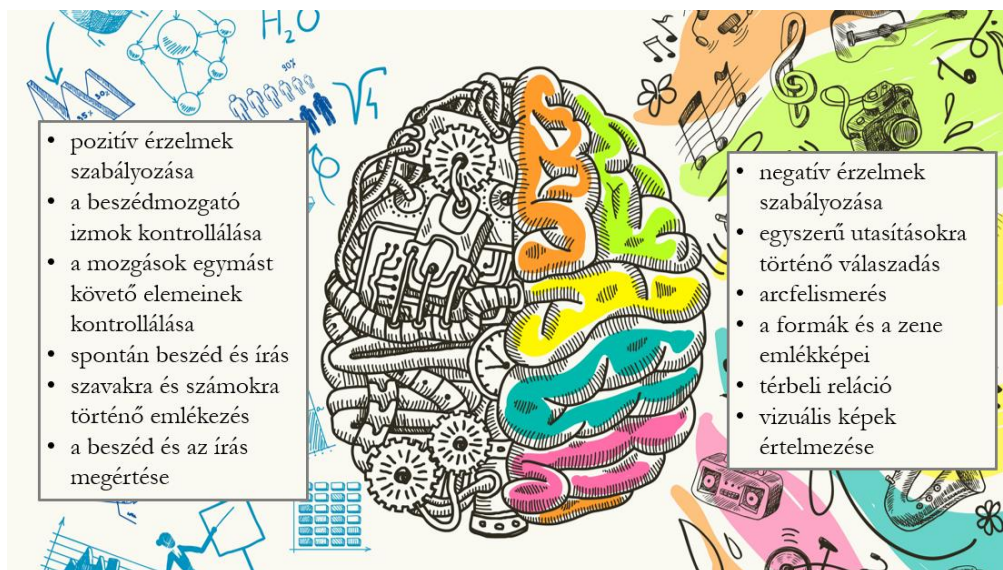 H₂O
30%
√4
• pozitív érzelmek
szabályozása
• a beszédmozgató
izmok kontrollálása
• a mozgások egymást
követő elemeinek
kontrollálása
• spontán beszéd és írás
• szavakra és számokra
történő emlékezés
• a beszéd és az írás
megértése
• negatív érzelmek
szabályozása
• egyszerű utasításokra
történő válaszadás
• arcfelismerés
• a formák és a zene
emlékképei
• térbeli reláció
• vizuális képek
értelmezése